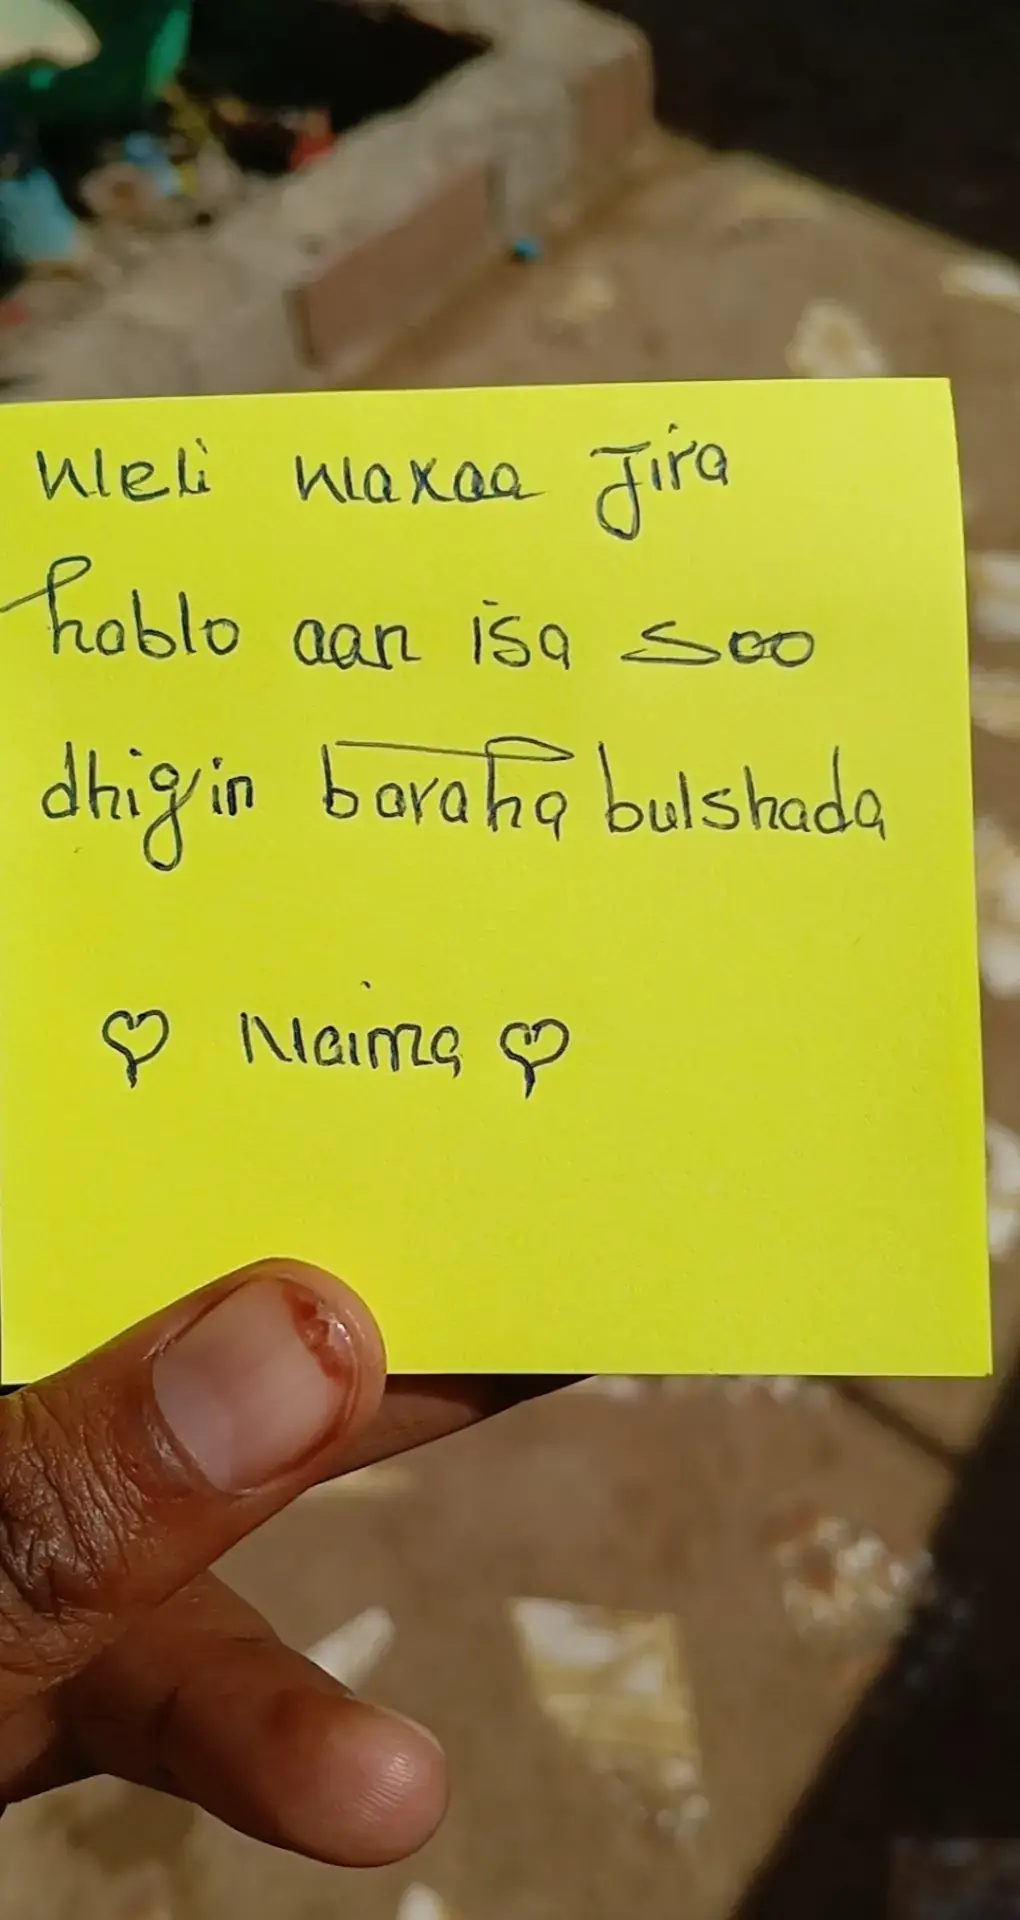 Weli waxaa Jira
hablo aan isa soo
dhigin baraha bulshada
♡ Naima ♡